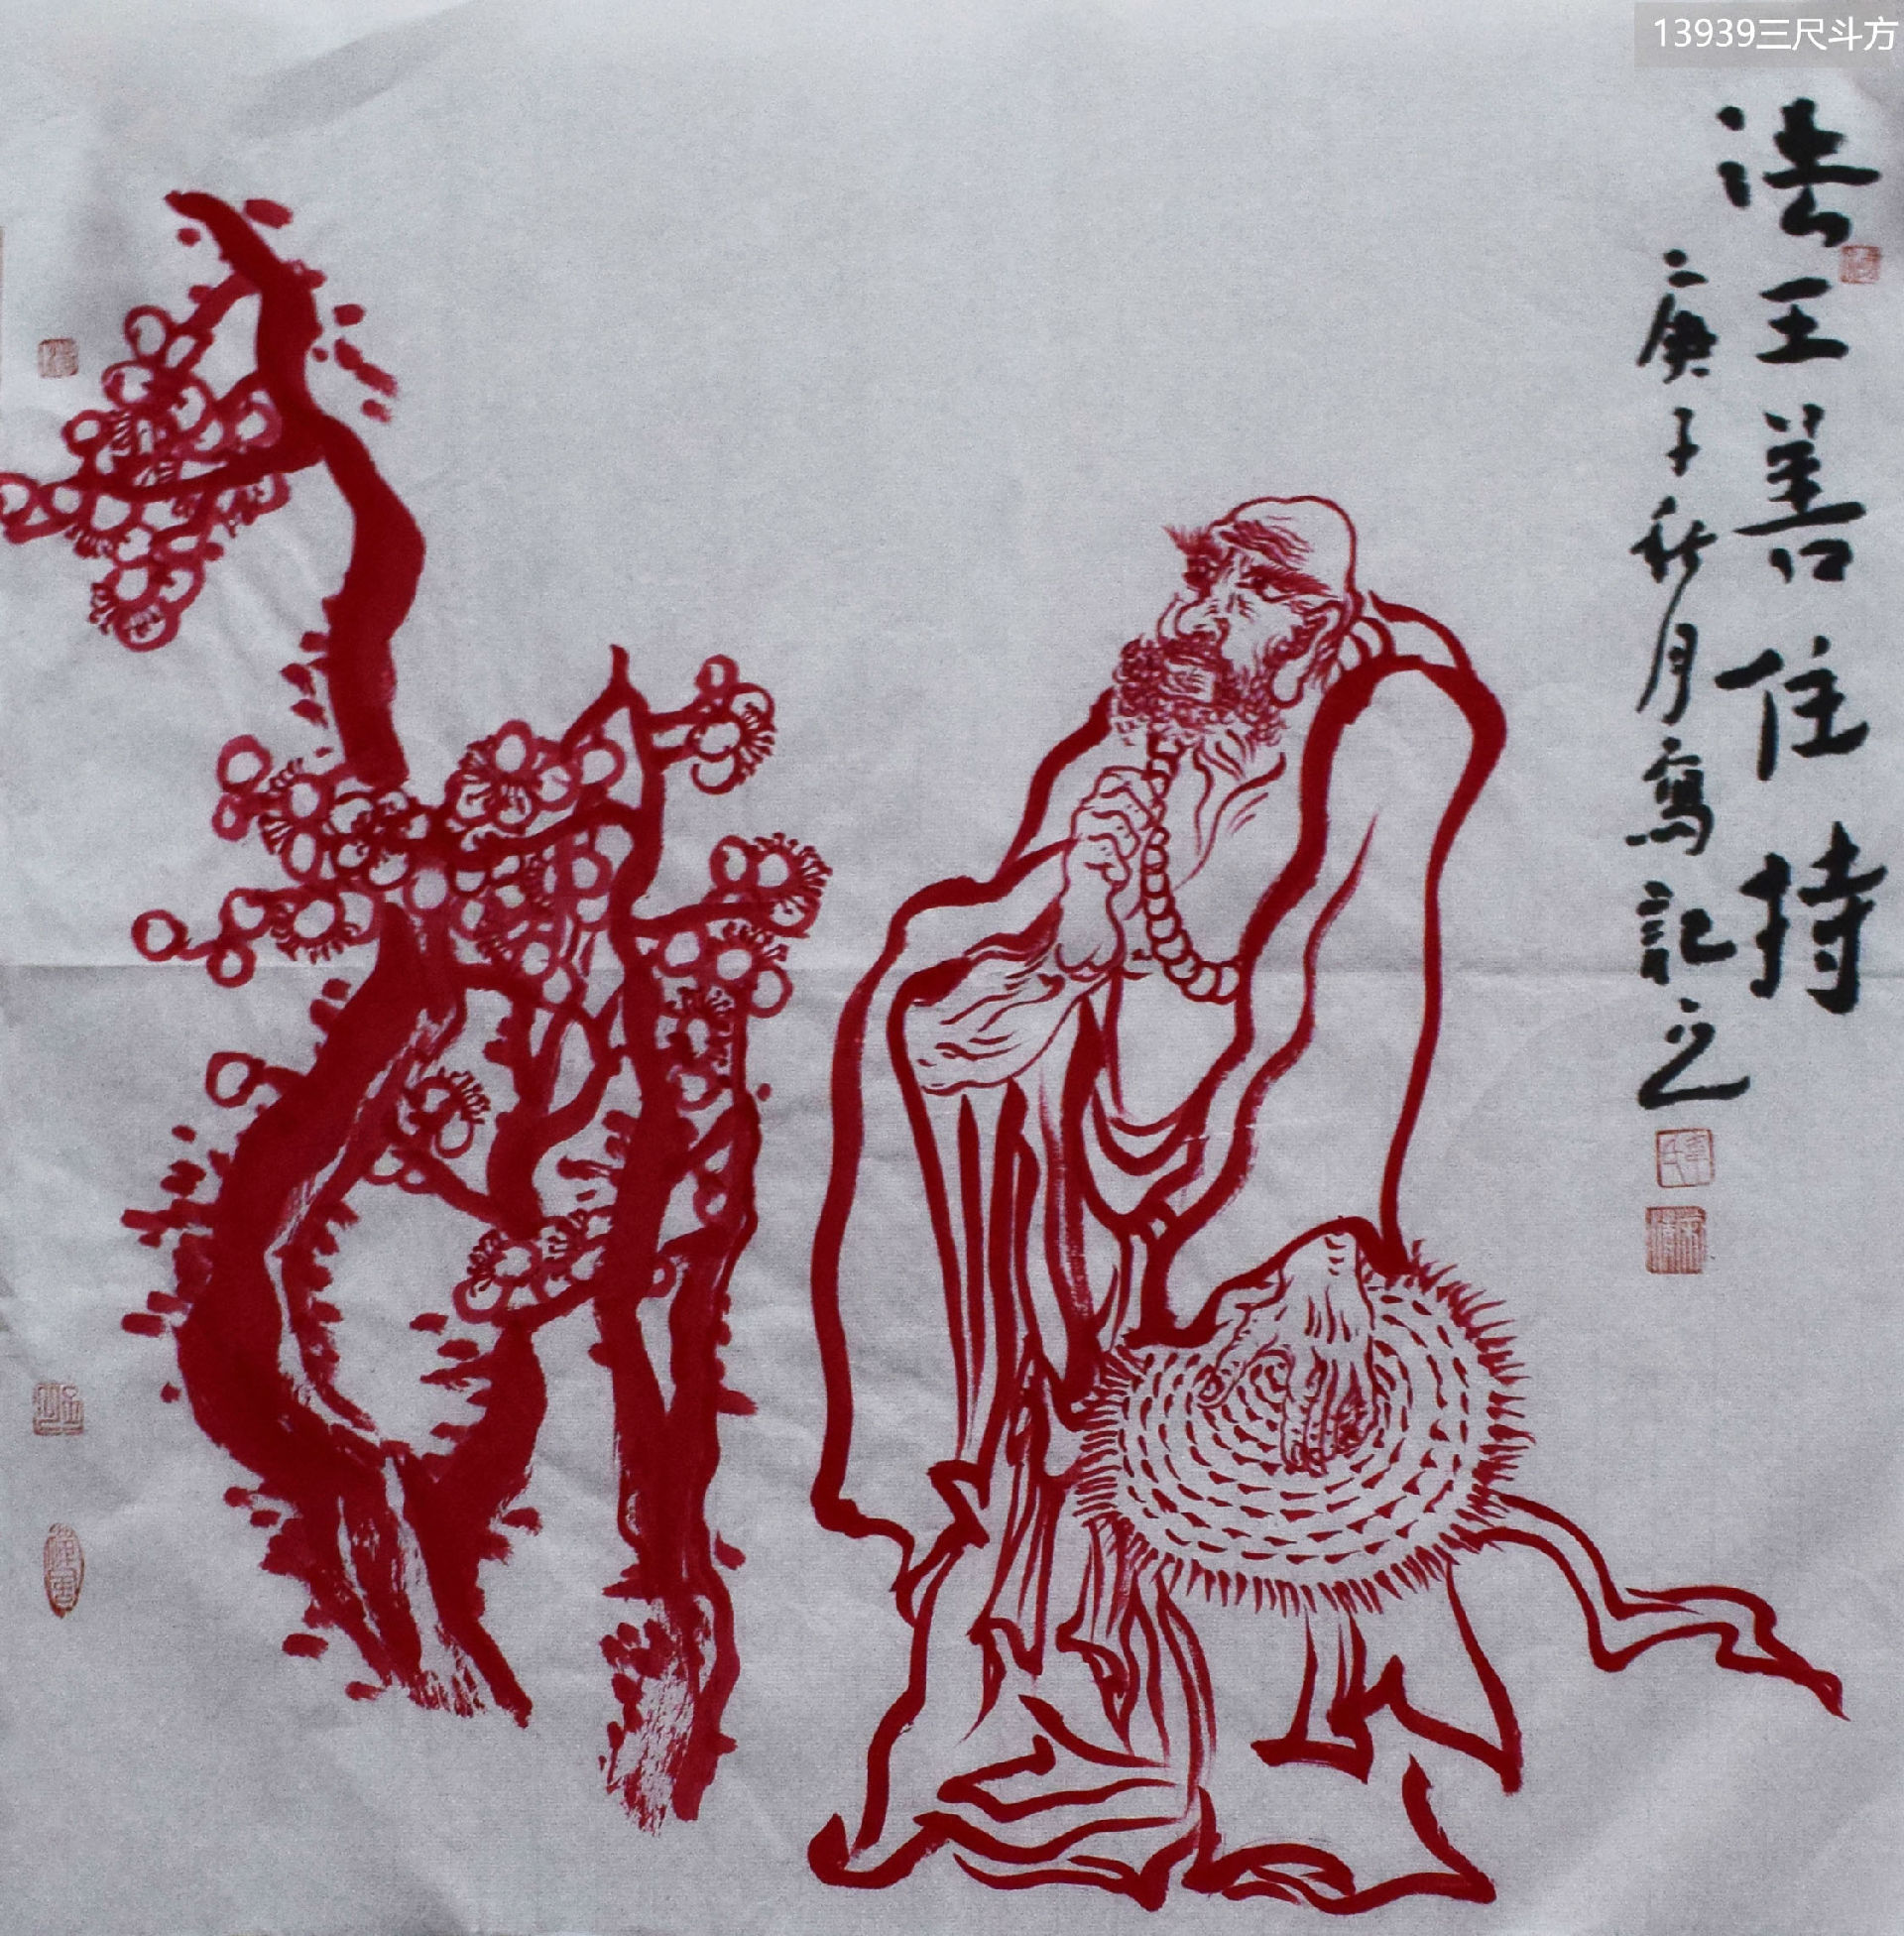 13939三尺斗方
法王善住持
二庚子秋月寫記之